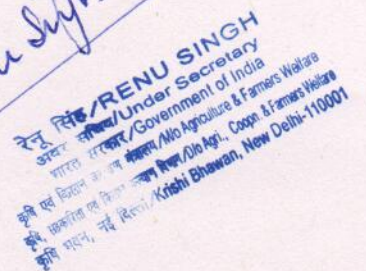 रेनू सिंह/RENU SINGH
अवर सचिव/Under Secretary
भारत सरकार/Government of India
कृषि एवं किसान कल्याण मंत्रालय/M/o Agriculture & Farmers Welfare
कृषि, सहकारिता एवं किसान कल्याण विभाग/D/o Agri., Coopn. & Farmers Welfare
कृषि भवन, नई दिल्ली/Krishi Bhawan, New Delhi-110001